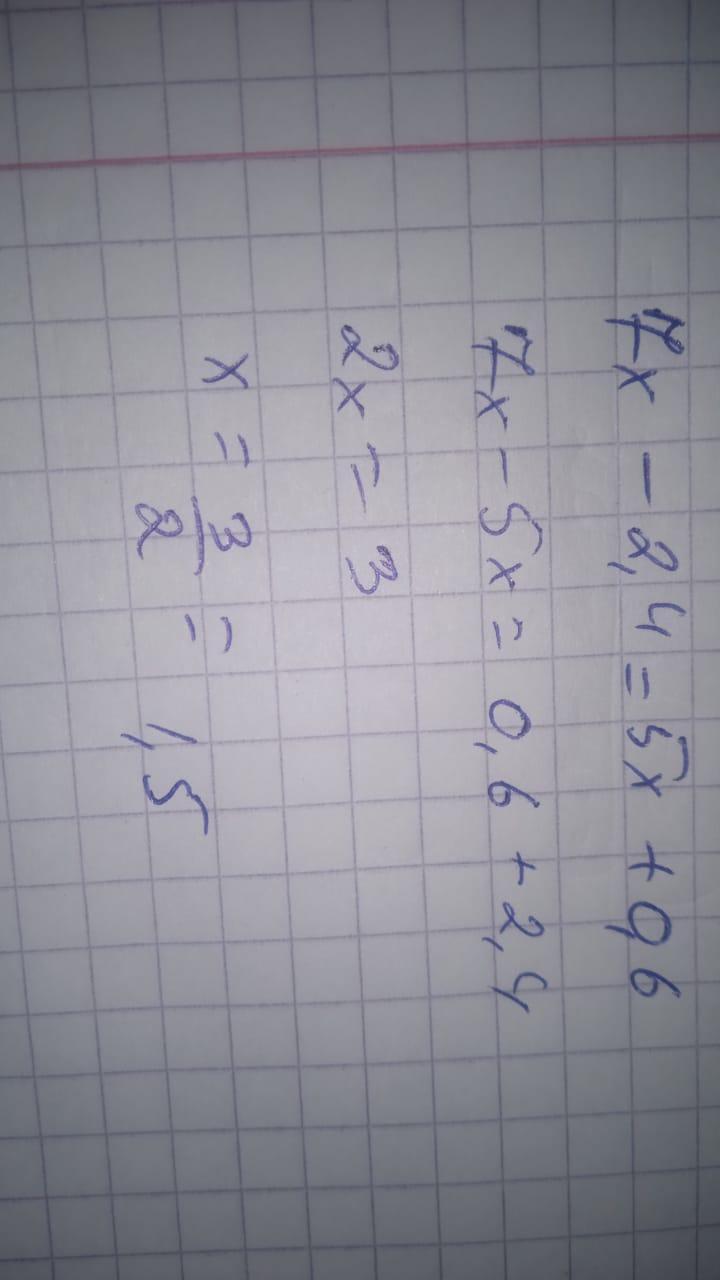 7x - 2,4 = 5x + 0,6
7x - 5x = 0,6 + 2,4
2x = 3
x = 3/2 = 1,5